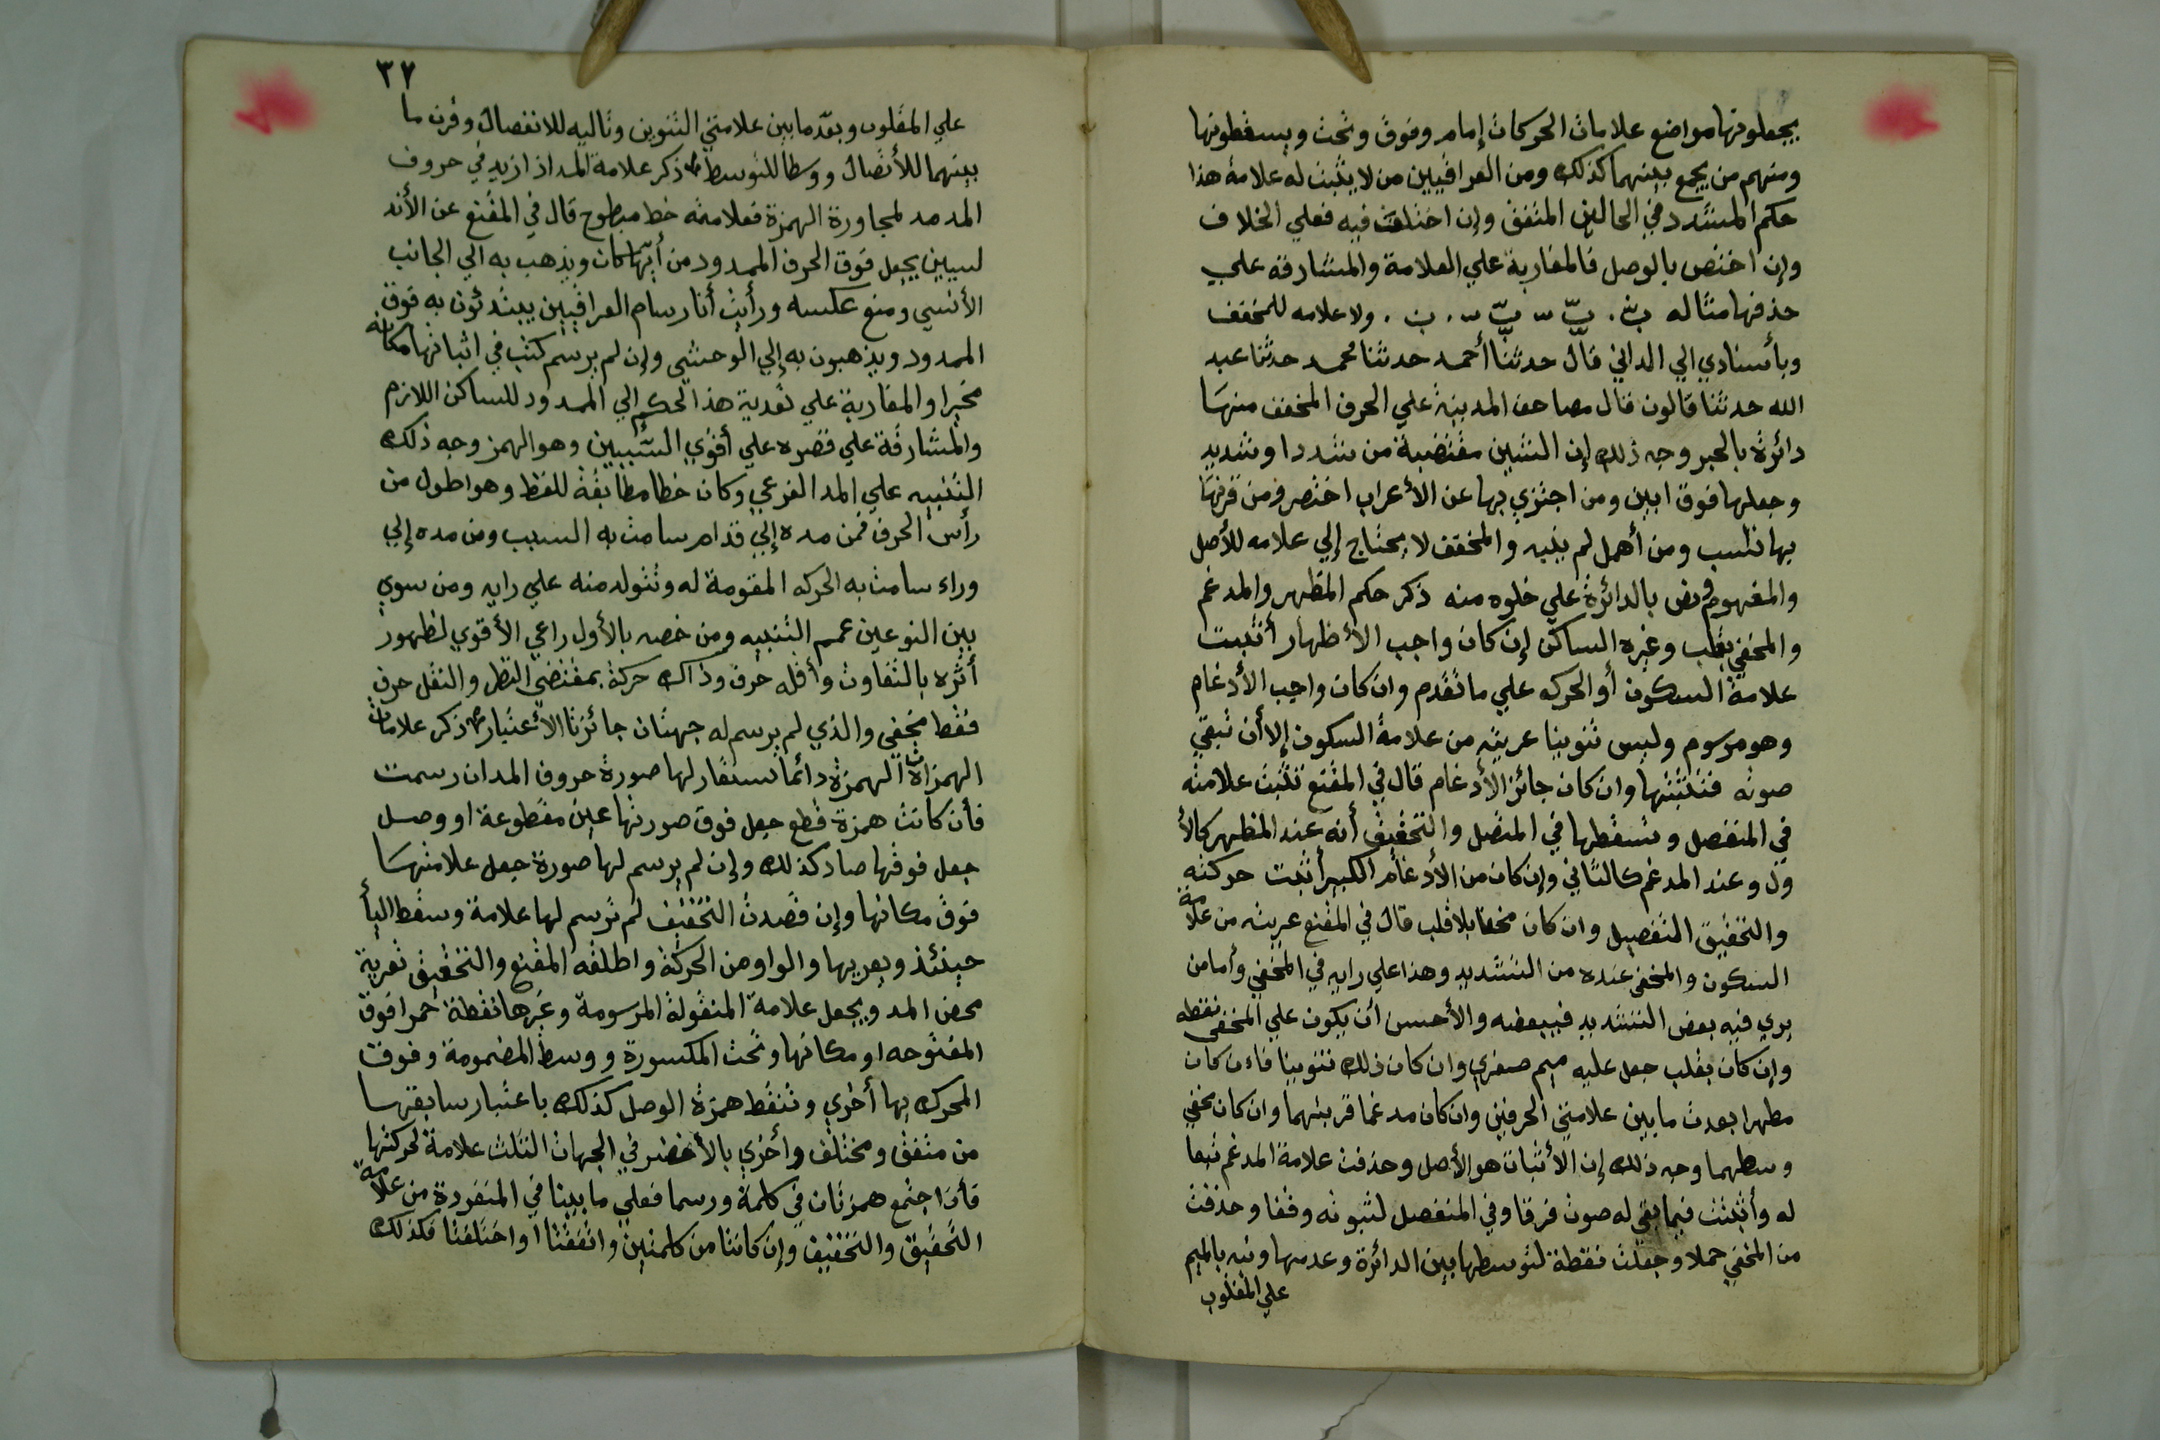 يجعلونها مواضع علامات الحركات إمام وفوق وتحت ويسقطونها
ومنهم من يجمع بينهما كذلك ومن العراقيين من لا يثبت له علامة هذا
حكم المشدد في الحالين المتفق وإن اختلفت فيه فعلي الخلاف
وإن اختص بالوصل فالمغاربة علي العلامة والمشارقة علي
حذفها مثاله ولا علامه للمخفف
وبأسنادي الي الداني قال حدثنا أحمد حدثنا محمد حدثنا عبد
الله حدثنا قالون قال مصاحف المدينة علي الحرف المخفف منها
دائرة بالحبر وجه ذلك إن الشين مقتضبة من شددا وشديد
وجعلها فوق ابين ومن اجتزي بها عن الأعراب اختصر فمن قرنها
بها نسب ومن أهمل لم ينبه والمخفف لا يحتاج إلي علامه للأصل
والمفهوم ونص بالدائرة علي خلوه منه ذكر حكم المظهر والمدغم
والمخفي بقلب وغيره الساكن إن كان واجب الأظهار أثبت
علامة السكون أو الحركه علي ما تقدم وان كان واجب الأدغام
وهو مرسوم وليس تنوينا عريته من علامة السكون إلا أن تبقي
صوته فتثبتها وان كان جائز الأدغام قال في المقنع تثبت علامته
في المنفصل وتسقطها في المتصل والتحقيق أنه عند المظهر كالأ
ول وعند المدغم كالثاني وإن كان من الأدغام الكبير أثبت حركته
والتحقيق التفصيل وان كان مخفا بلا قلب قال في المقنع عريته من علامة
السكون والمخفي عنده من التشديد وهذا علي رايه في المخفي وأما من
يري فيه بعض التشديد فيبعضه والأحسن أن يكون علي المخفي نقطه
وإن كان بقلب جعل عليه ميم صغري وان كان ذلك تنوينا فاءن كان
مظهرا بعدت ما بين علامتي الحرفين وان كان مدغما قربتهما وان كان مخفي
وسطهما وجه ذلك إن الأثبات هو الأصل وحذفت علامة المدغم تبعا
له وأثبتت فيما بقي له صوت فرقا وفي المنفصل لثبوته وقفا وحذفت
من المخفي حملا وجعلت نقطة لتوسطها بين الدائرة وعدمها ونبه بالميم
علي المقلوب
٣٧
علي المقلوب وبعد ما بين علامتي التنوين وتاليه للانفصال وقرب ما
بينهما للأتصال ووسطا للتوسط ذكر علامة المد اذ ازيد في حروف
المد مد لمجاورة الهمزة فعلامته خط مبطوح قال في المقنع عن الأند
لسيين يجعل فوق الحرف الممدود من أيها كان ويذهب به الي الجانب
الأنسي ومنع عكسه ورأيت أنا رسام العراقيين يبتدئون به فوق
الممدود ويذهبون به إلي الوحشي وإن لم يرسم كتب في اثباتها مكانه
مخيرا والمغاربة علي تعدية هذا الحكم إلي الممدود للساكن اللازم
والمشارقة علي قصره علي أقوي السببين وهو الهمز وجه ذلك
التنبيه علي المد الفرعي وكان خطا مطابقة للفظ وهو اطول من
رأس الحرف فمن مده إلي قدام سامت به السبب ومن مده إلي
وراء سامت به الحركه المقومة له وتتولد منه علي رايه ومن سوي
بين النوعين عمم التنبيه ومن خصه بالأول راعي الأقوي لظهور
أثره بالتفاوت وأقله حرف وذاك حركة بمقتضي النظر والنقل حرف
فقط مخفي والذي لم يرسم له جهتان جائزتا الأعتبار ذكر علامات
الهمزات الهمزة دائما ستعار لها صورة حروف المدان رسمت
فأن كانت همزة قطع جعل فوق صورتها عين مقطوعة او وصل
جعل فوقها صاد كذلك وإن لم يرسم لها صورة جعل علامتها
فوق مكانها وإن قصدت التخفيف لم ترسم لها علامة وسقط اليأ
حينئذ ويعريها والواو من الحركة واطلقه المقنع والتحقيق تعرية
محض المد ويجعل علامة المنقولة المرسومة وغيرها نقطة حمرا فوق
المفتوحه او مكانها وتحت المكسورة ووسط المضمومة وفوق
المحرك بها أخري وتنقط همزة الوصل كذلك باعتبار سابقتها
من متفق ومختلف وأخري بالأخضر في الجهات الثلث علامة لحركتها
فأن اجتمع همزتان في كلمة ورسما فعلي ما بينا في المنفردة من علامة
التحقيق والتخفيف وإن كانتا من كلمتين واتفقتا او اختلفتا فكذلك